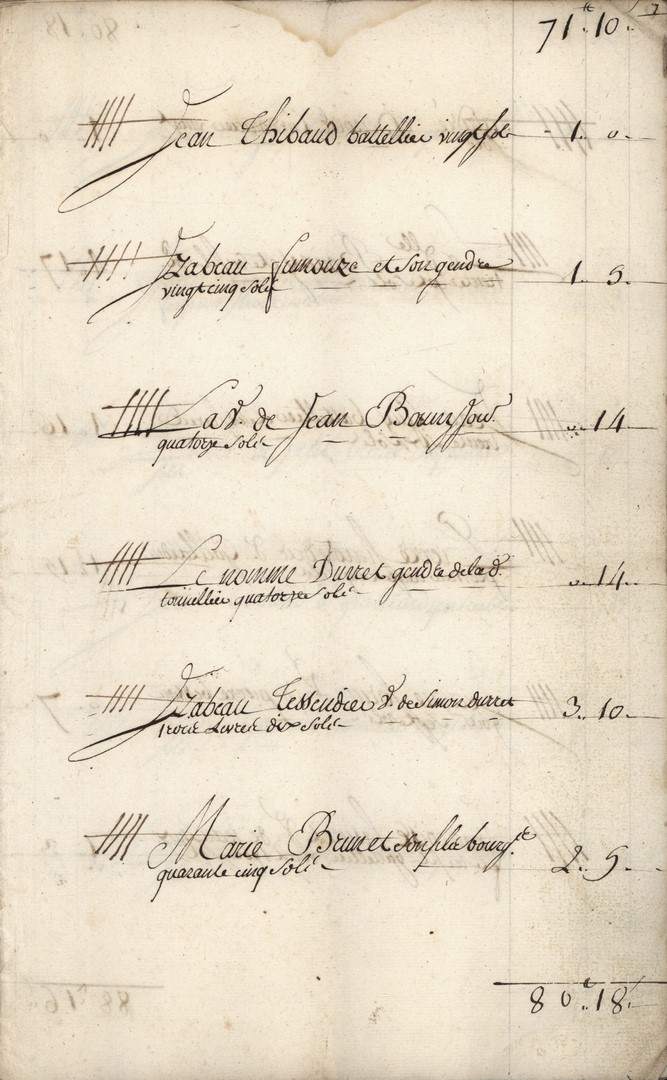 7
71ᵗᵗ 10.
Jean Thibaud battellier vingt sols 1.. 0..
Izabeau fumouze et son gendre
vingt cinq sols 1.. 5.
La v. de Jean
quatorze sols 0.. 14
Le nommé Durret gendre de la d.
tonnellier quatorze sols 0.. 14..
Izabeau Tessendier v. de Simon durret
trois Livres dix sols 3.. 10.
Marie Brun et son fils bourg.
quarante cinq sols 2.. 5.
80ᵗᵗ 18ˢ